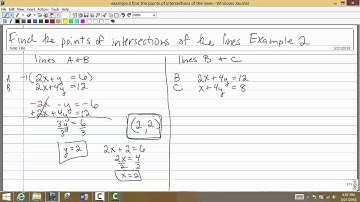 example 2 find the points of intersections of the lines - Windows Journal
Find the points of intersections of the lines Example 2
lines A + B
lines B + C
A -1(2x+y = 6)
B 2x+4y=12
-2x -y = -6
+2x+4y=12
3y = 6
3 3
y=2
(2,2)
2x+2=6
2x=4
2 2
x=2
B 2x+4y=12
C x+4y = 8